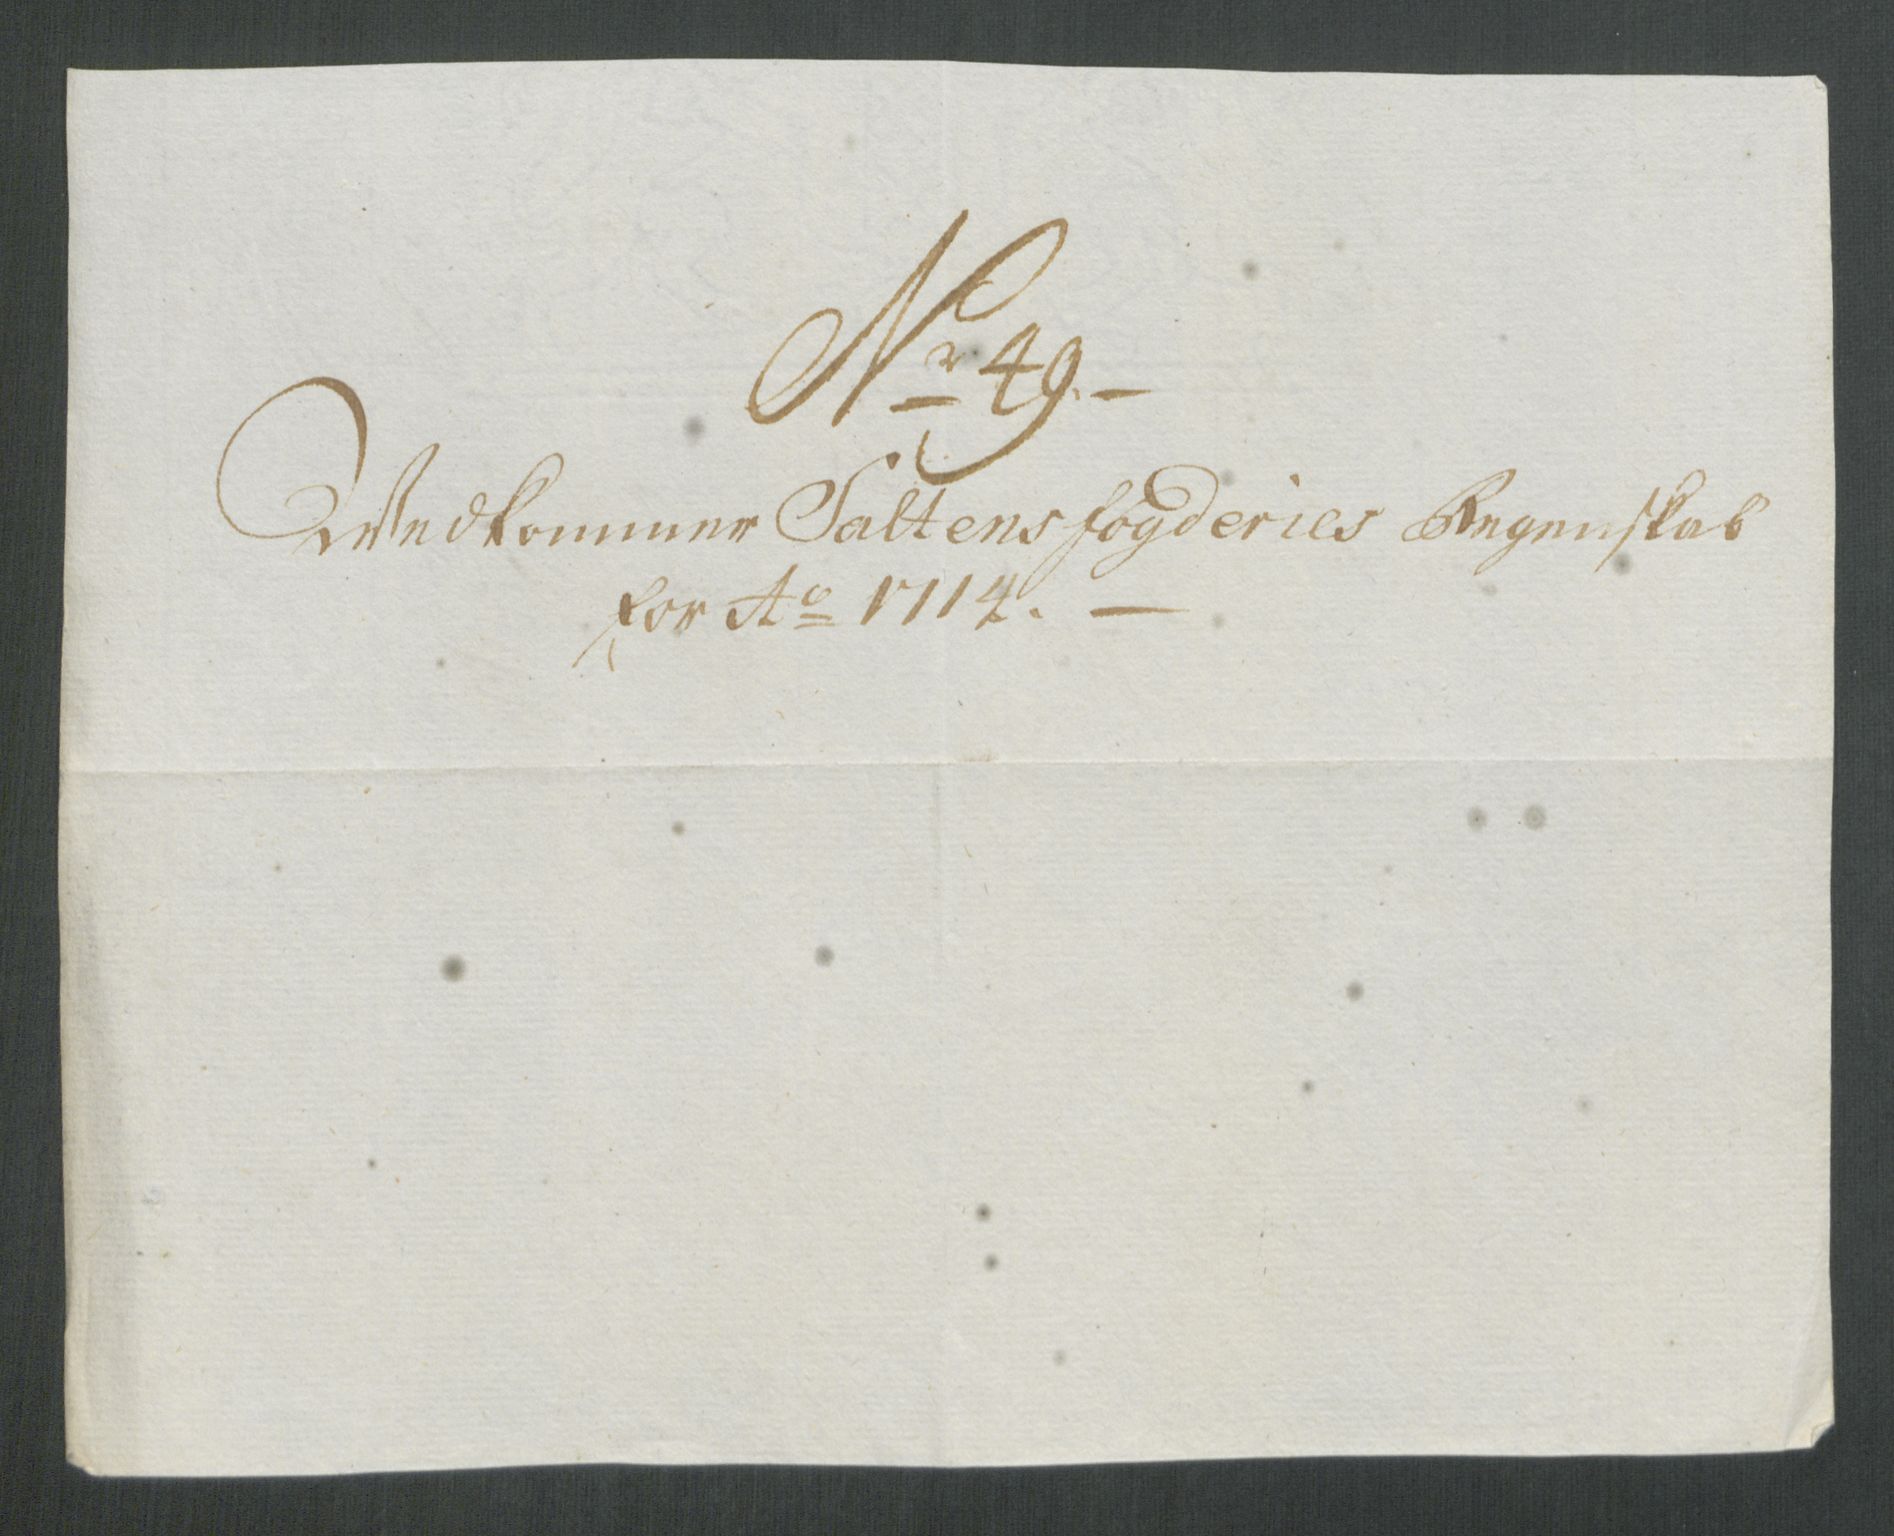 Nr 49. —
Vedkommer Saltens fogderies Regenskab
for Ao 1714. —